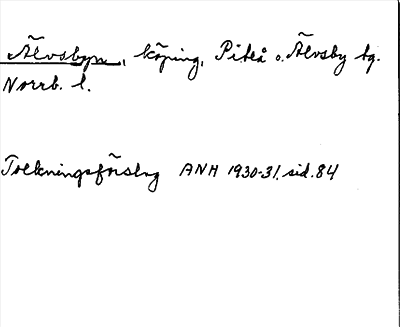 Älvsbyn, köping, Piteå o. Älvsby tg.
Norrb. l.
Tolkningsförslag ANH 1930-31. sid. 84